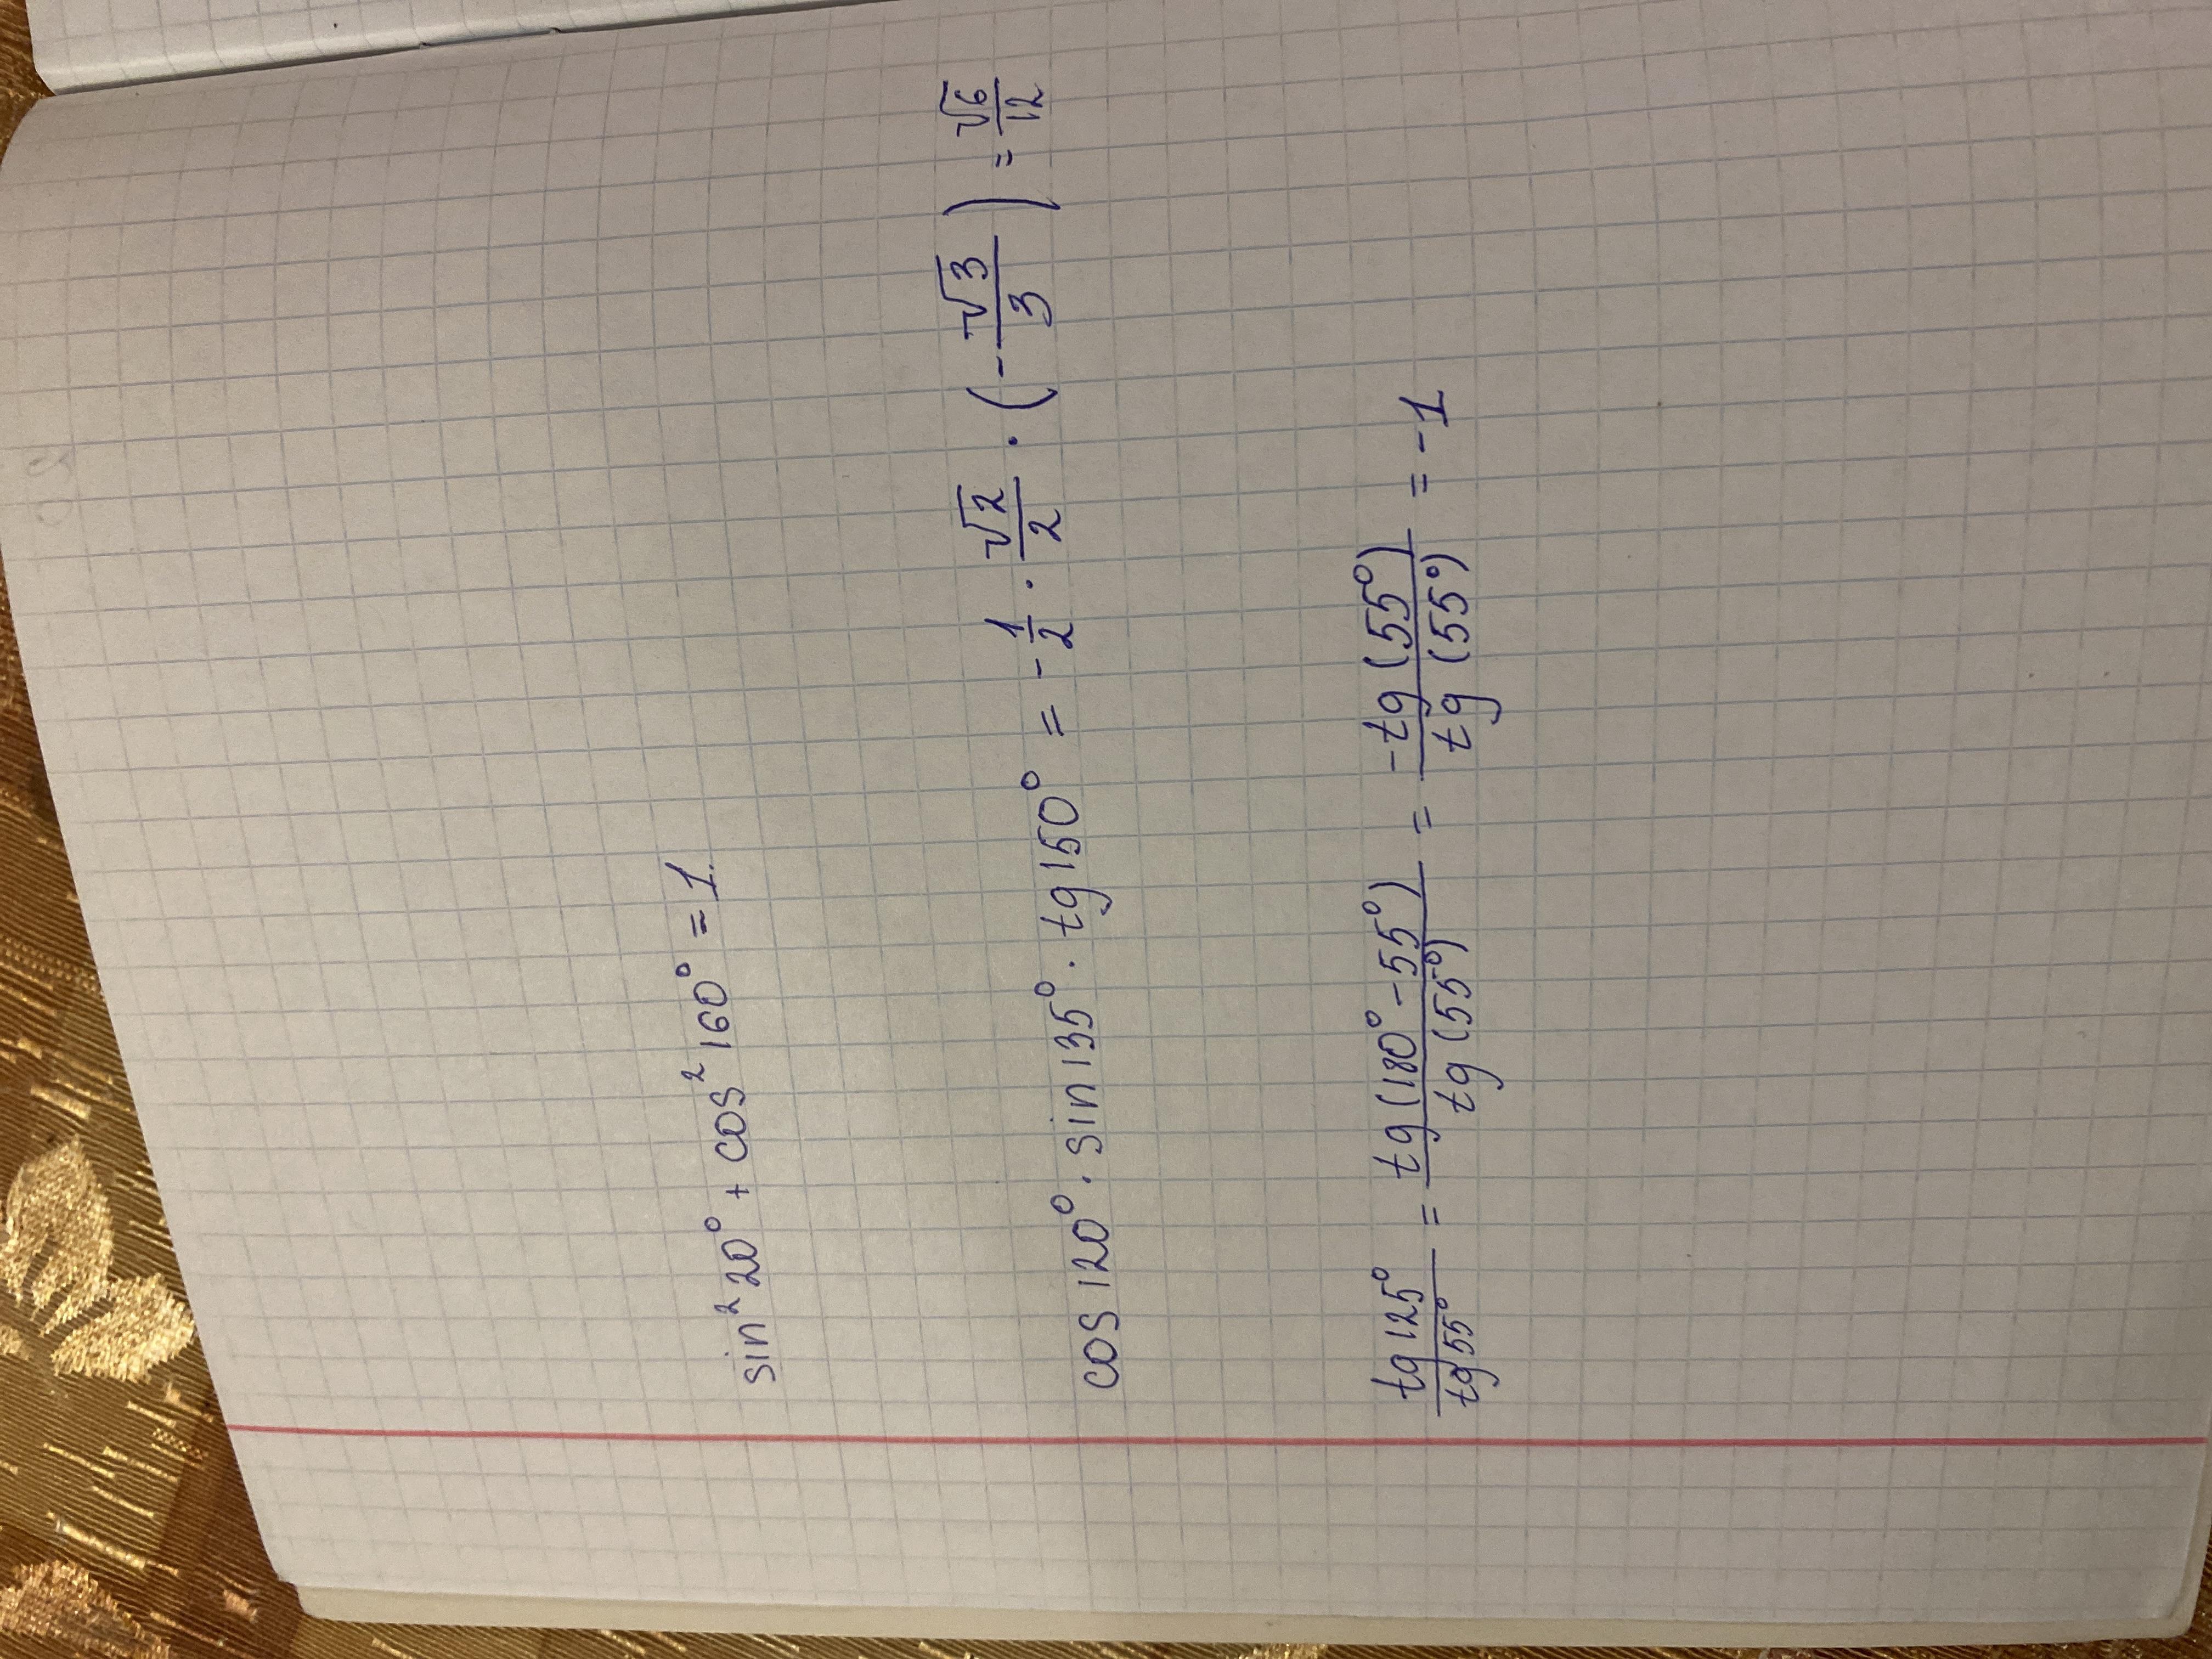 sin²20° + cos²160° = 1.
cos120° · sin135° · tg150° = -1/2 · √2/2 · (-√3/3) = √6/12
tg125°/tg55° = tg(180°-55°)/tg(55°) = -tg(55°)/tg(55°) = -1